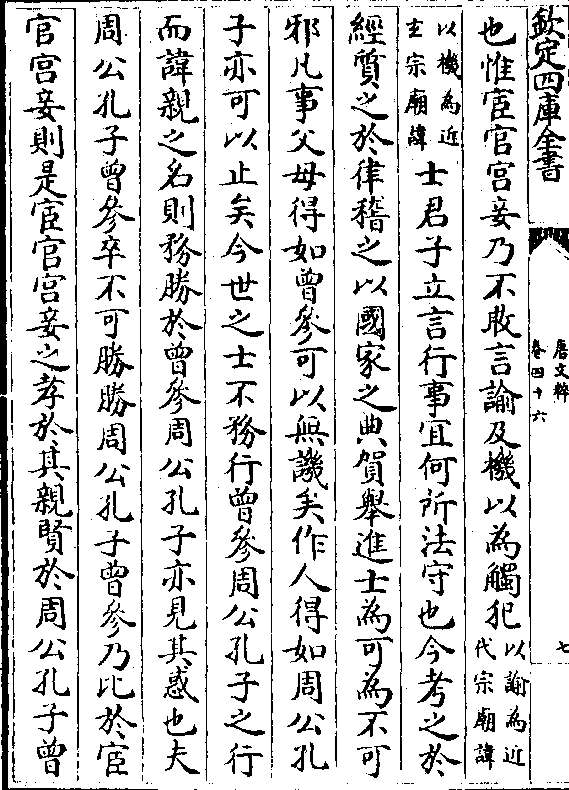 欽定四庫全書
唐文粹
卷四十六
七
也惟宦官宮妾乃不敢言諭及機以為觸犯以諭為近代宗廟諱
以機為近玄宗廟諱士君子立言行事宜何所法守也今考之於
經質之於律稽之以國家之典賀舉進士為可為不可
邪凡事父母得如曾參可以無譏矣作人得如周公孔
子亦可以止矣今世之士不務行曾參周公孔子之行
而諱親之名則務勝於曾參周公孔子亦見其惑也夫
周公孔子曾參卒不可勝勝周公孔子曾參乃比於宦
官宮妾則是宦官宮妾之孝於其親賢於周公孔子曾